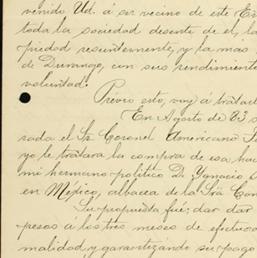 venido Ud. á ser vecino de este Es
toda la sociedad desente de el, la
piedad resientemente, y la mas
de Durango, con sus rendimiento
voluntad.
Previo esto, voy á tratarle
En Agosto de 83 s
rada el Sr. Coronel Americano
yo le tratara la compra de esa hac
mi hermano político D. Ygnacio
en México, albacea de la Sra Con
Su propuesta fué: dar
pesos á los tres meses de efectua
malidad, y garantizando su pago